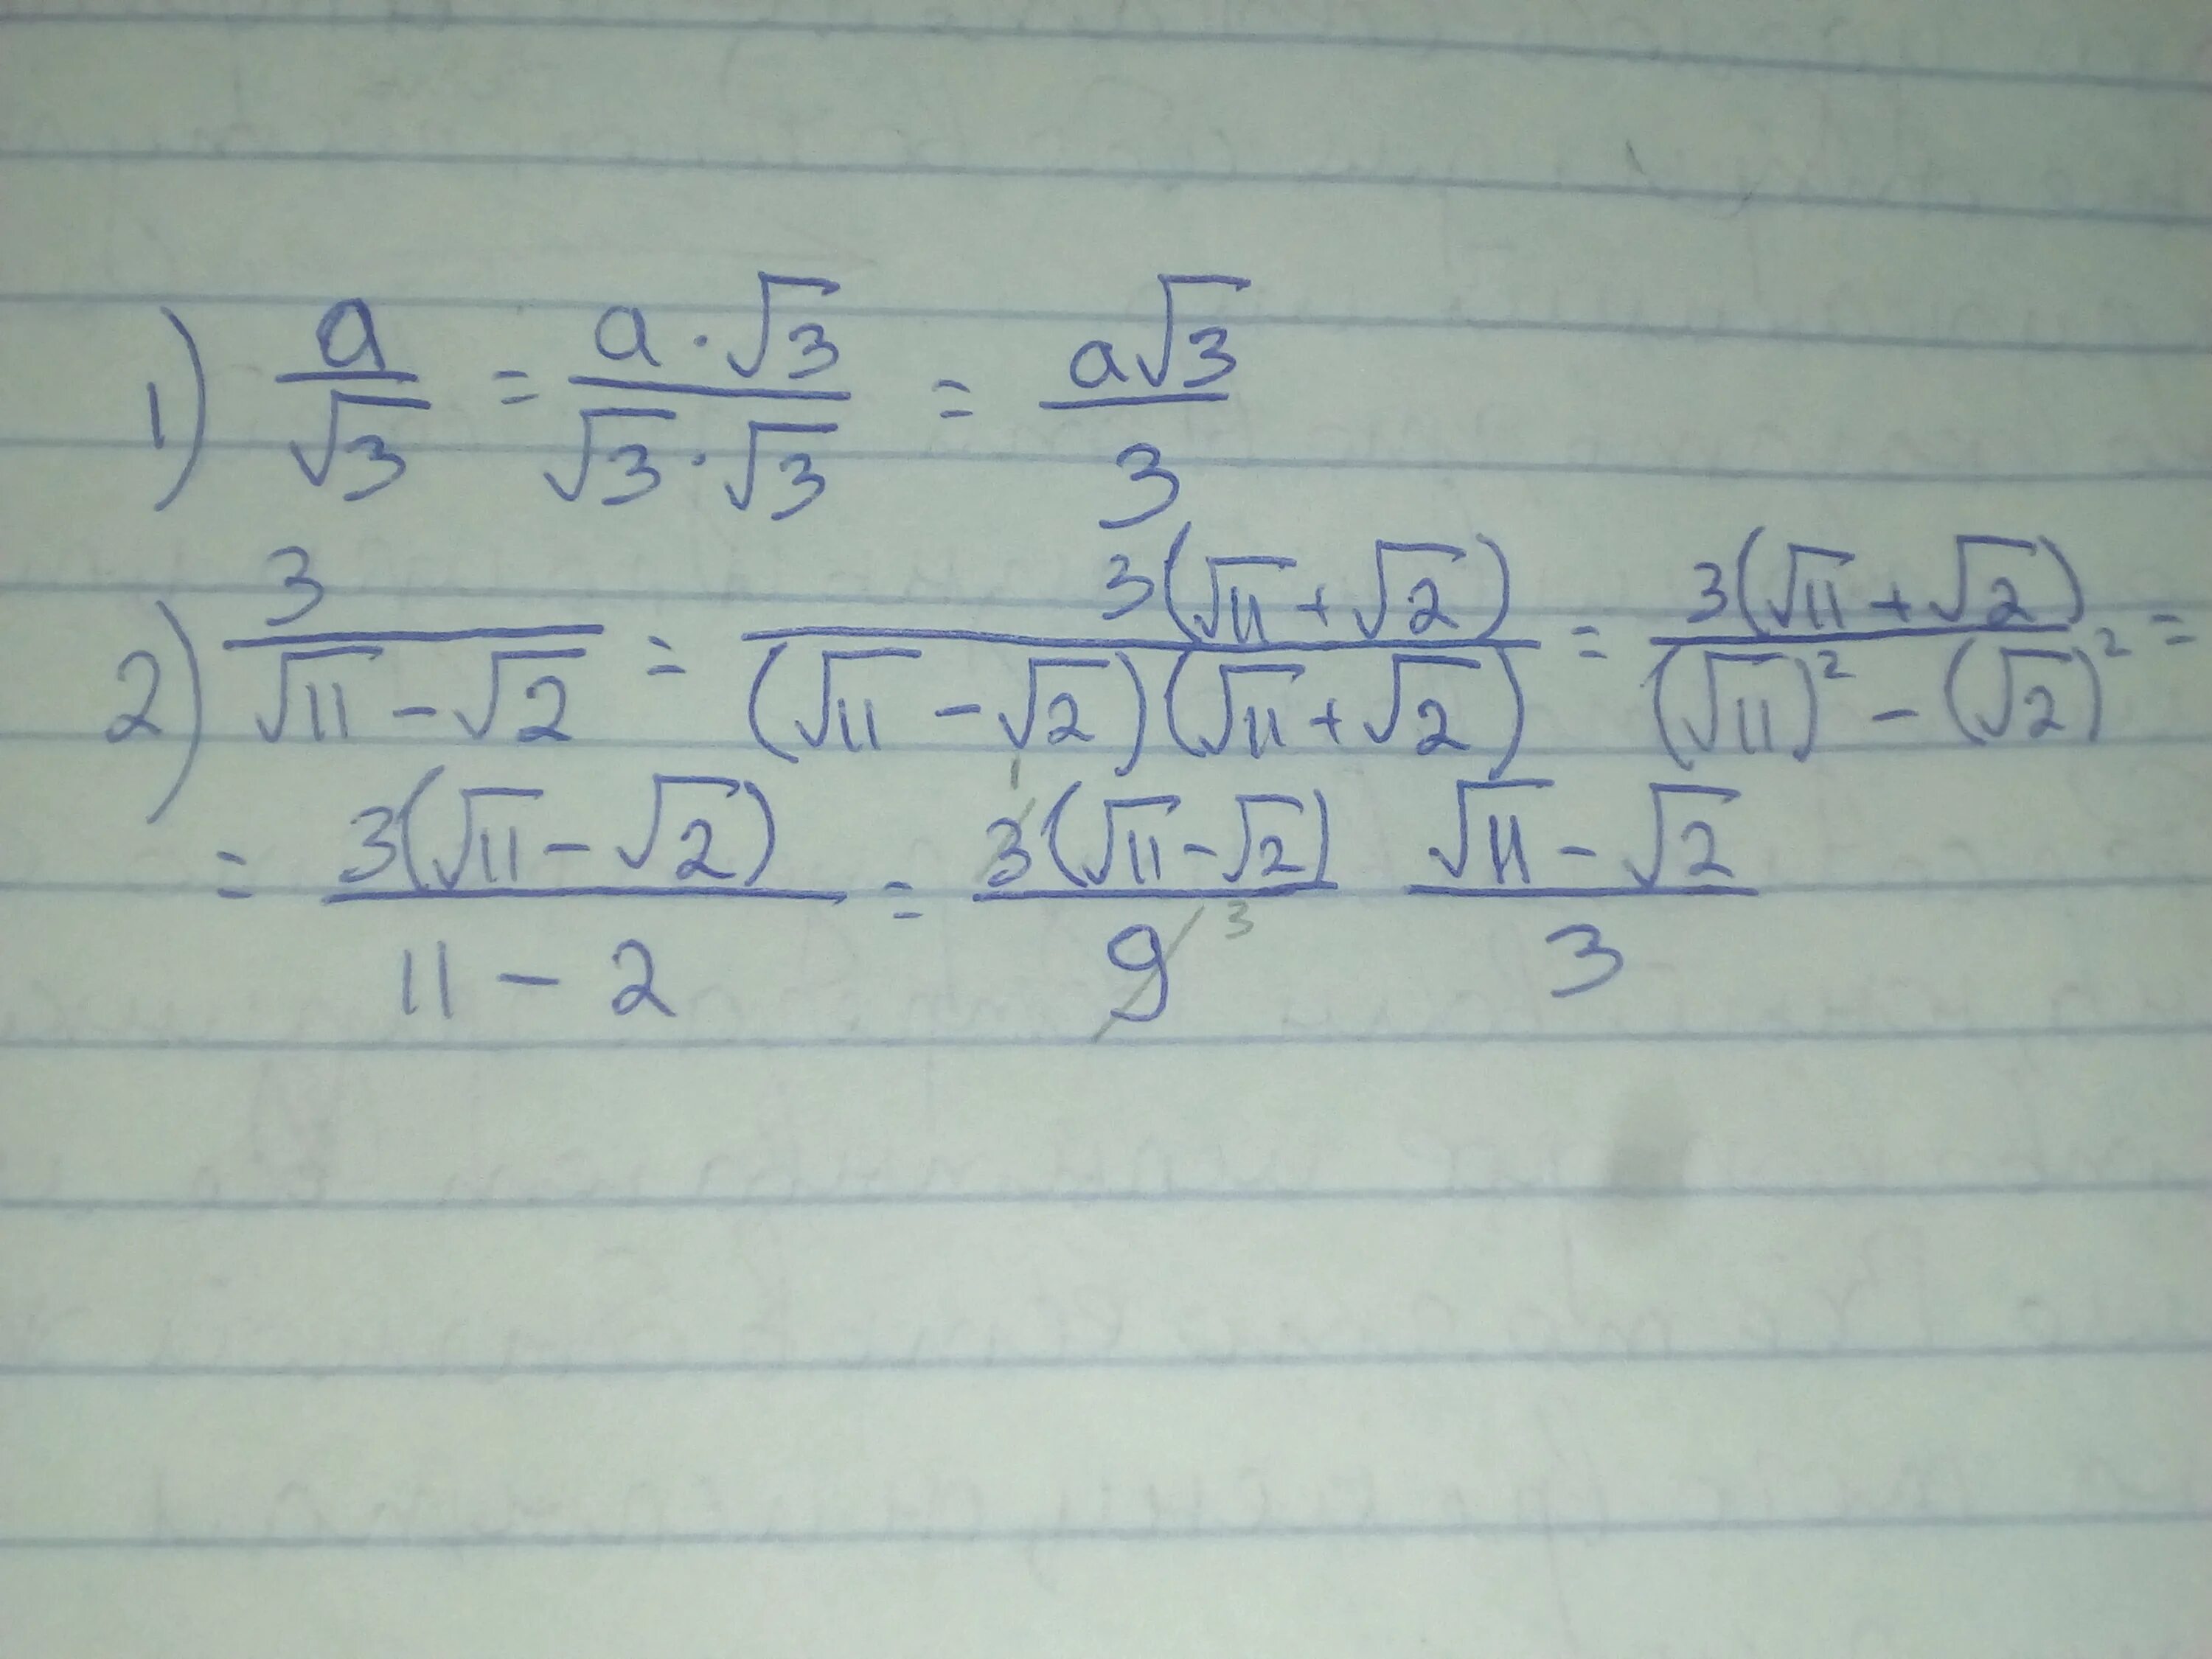 1) a/√3 = a·√3/√3·√3 = a√3/3
2) 3/√11-√2 = 3(√11+√2)/(√11-√2)(√11+√2) = 3(√11+√2)/(√11)²-(√2)² =
= 3(√11-√2)/11-2 = 3 1(√11-√2)/9 3 √11-√2/3